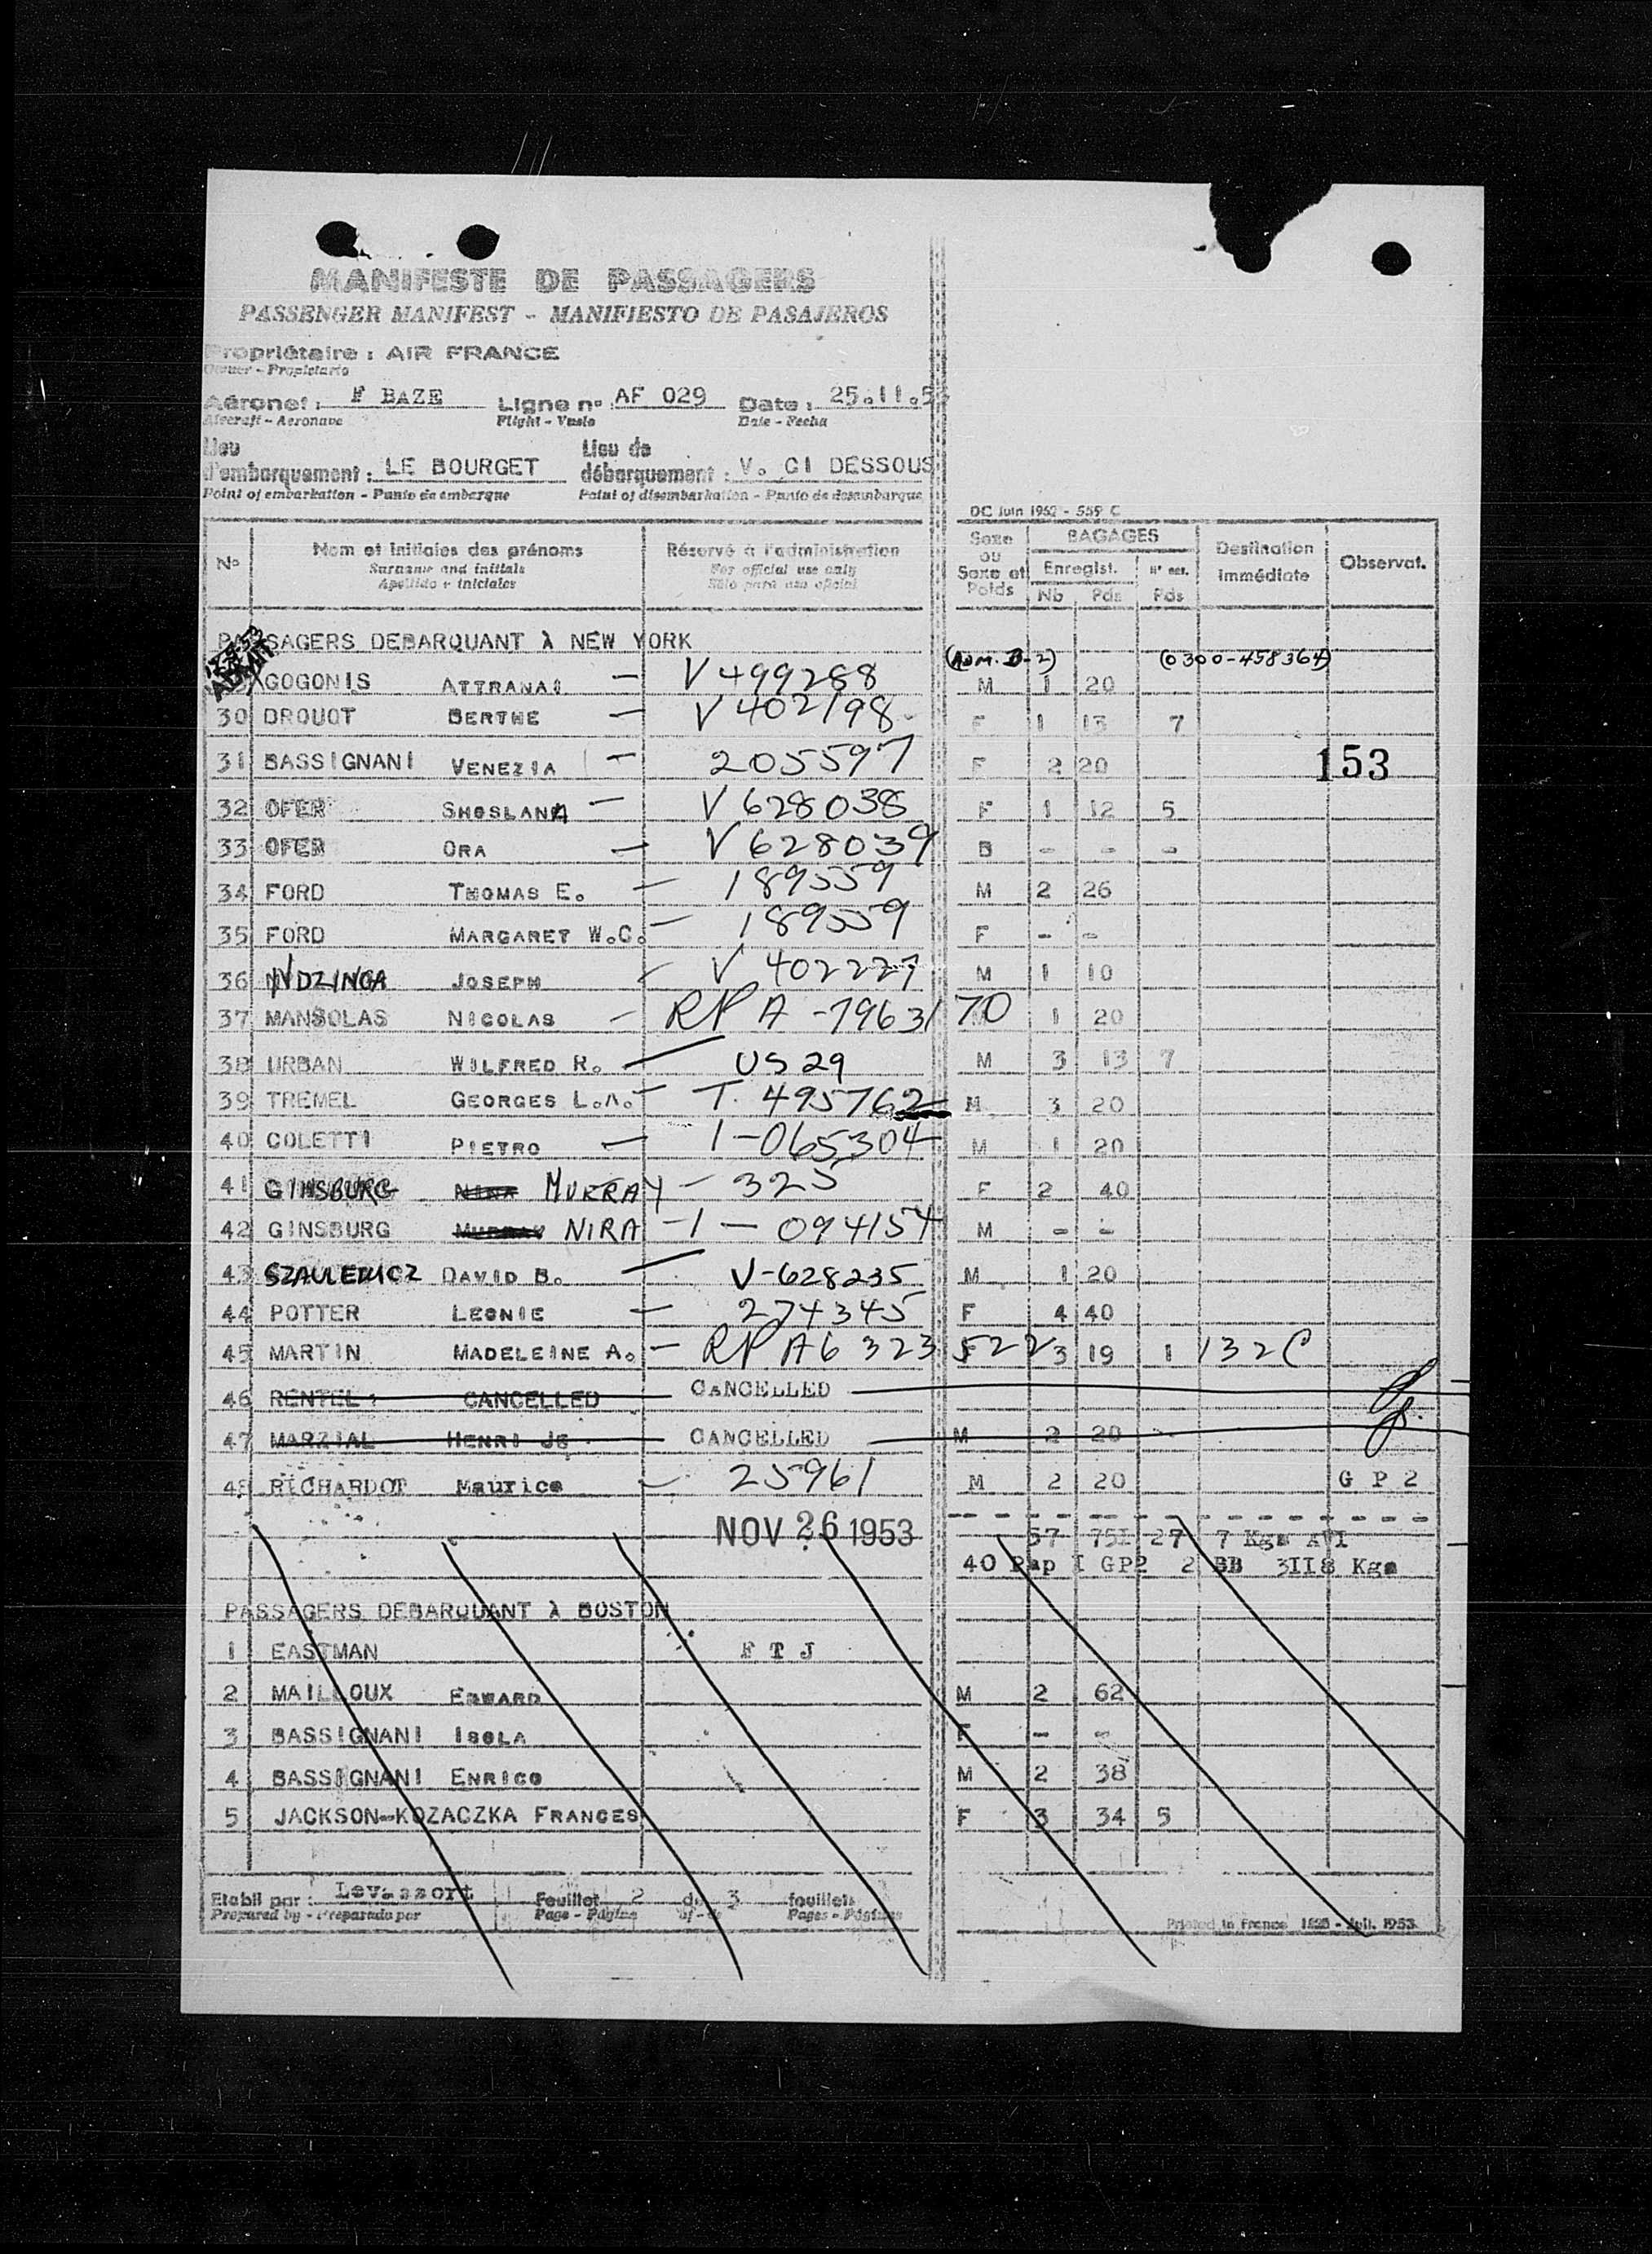 MANIFESTE DE PASSAGERS
PASSENGER MANIFEST - MANIFIESTO DE PASAJEROS
Propriétaire : AIR FRANCE
Owner - Propietario
Aéronef : F BAZE Ligne n° : AF 029 Date : 25.11.53
Aircraft - Aeronave Flight - Vuelo Date - Fecha
Lieu d'embarquement : LE BOURGET Lieu de débarquement : V. CI DESSOUS
Point of embarkation - Punto de embarque Point of disembarkation - Punto de desembarque
DC Juin 1952 - 559 C
N° Nom et initiales des prénoms Réservé à l'administration Sexe ou Sexe et Poids BAGAGES Destination immédiate Observat.
Surname and initials For official use only Enregist. N° enr.
Apellido e iniciales Sólo para uso oficial Nb Pds Pds
PASSAGERS DEBARQUANT À NEW YORK
ADMIT (ADM. B-2) (0300-458364)
GOGONIS ATTRANAI - V 499288 M 1 20
30 DROUOT BERTHE - V 402198 F 1 13 7
31 BASSIGNANI VENEZIA - 205597 F 2 20 153
32 OFER SHOSLANA - V 628038 F 1 12 5
33 OFER ORA - V 628039 B - - -
34 FORD THOMAS E. - 189559 M 2 26
35 FORD MARGARET W.C. - 189559 F - -
36 NDZINGA JOSEPH - V 402227 M 1 10
37 MANSOLAS NICOLAS - RP A-7963170 M 1 20
38 URBAN WILFRED R. - US 29 M 3 13 7
39 TREMEL GEORGES L.A. - T. 495762 M 3 20
40 COLETTI PIETRO - 1-065304 M 1 20
41 GINSBURG NINA MURRAY - 325 F 2 40
42 GINSBURG MURRAY NIRA - 1 - 094154 M - -
43 SZAULEWICZ DAVID B. - V-628235 M 1 20
44 POTTER LEONIE - 274345 F 4 40
45 MARTIN MADELEINE A. - RP A6 323 522 F 3 19 1 132C
46 RENTEL CANCELLED CANCELLED
47 MARZIAL HENRI JE CANCELLED M 2 20
48 RICHARDOT Maurice - 25961 M 2 20 G P 2
NOV 26 1953 57 751 27 7 Kgs AVI
40 Pap I GP2 2 BB 3II8 Kgs
PASSAGERS DEBARQUANT À BOSTON
1 EASTMAN F T J
2 MAILLOUX EDWARD M 2 62
3 BASSIGNANI ISOLA F - -
4 BASSIGNANI ENRICO M 2 38
5 JACKSON-KOZACZKA FRANCES F 3 34 5
Etabli par : Levassort Feuillet 2 de 3 feuillets
Prepared by - Preparado por Page - Página of - de Pages - Páginas
Printed in France - Juil. 1953